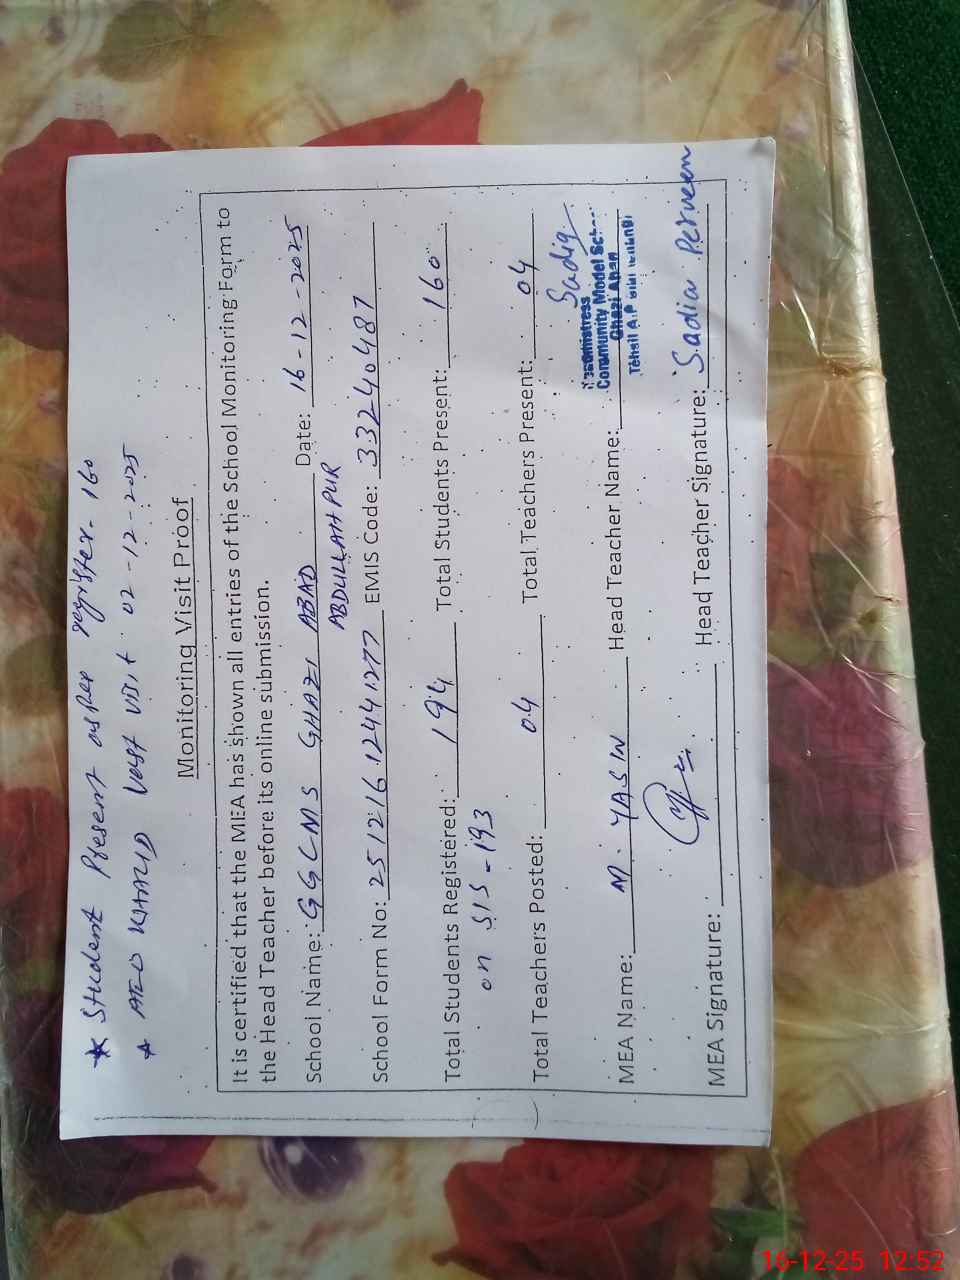 ★ Student Present as per register - 160
★ AEO KHALID Last Visit 02-12-2025
Monitoring Visit Proof
It is certified that the MEA has shown all entries of the School Monitoring Form to
the Head Teacher before its online submission.
School Name: GGCMS GHAZI ABAD Date: 16-12-2025
ABDULLAH PUR
School Form No: 25121612441277 EMIS Code: 33240487
Total Students Registered: 194 Total Students Present: 160
on SIS - 193
Total Teachers Posted: 04 Total Teachers Present: 04
Sadia
Headmistress
Community Model
Ghazi Abad
MEA Name: M. YASIN Head Teacher Name:
Tehsil
MEA Signature: Head Teacher Signature: Sadia Perveen
16-12-25 12:52